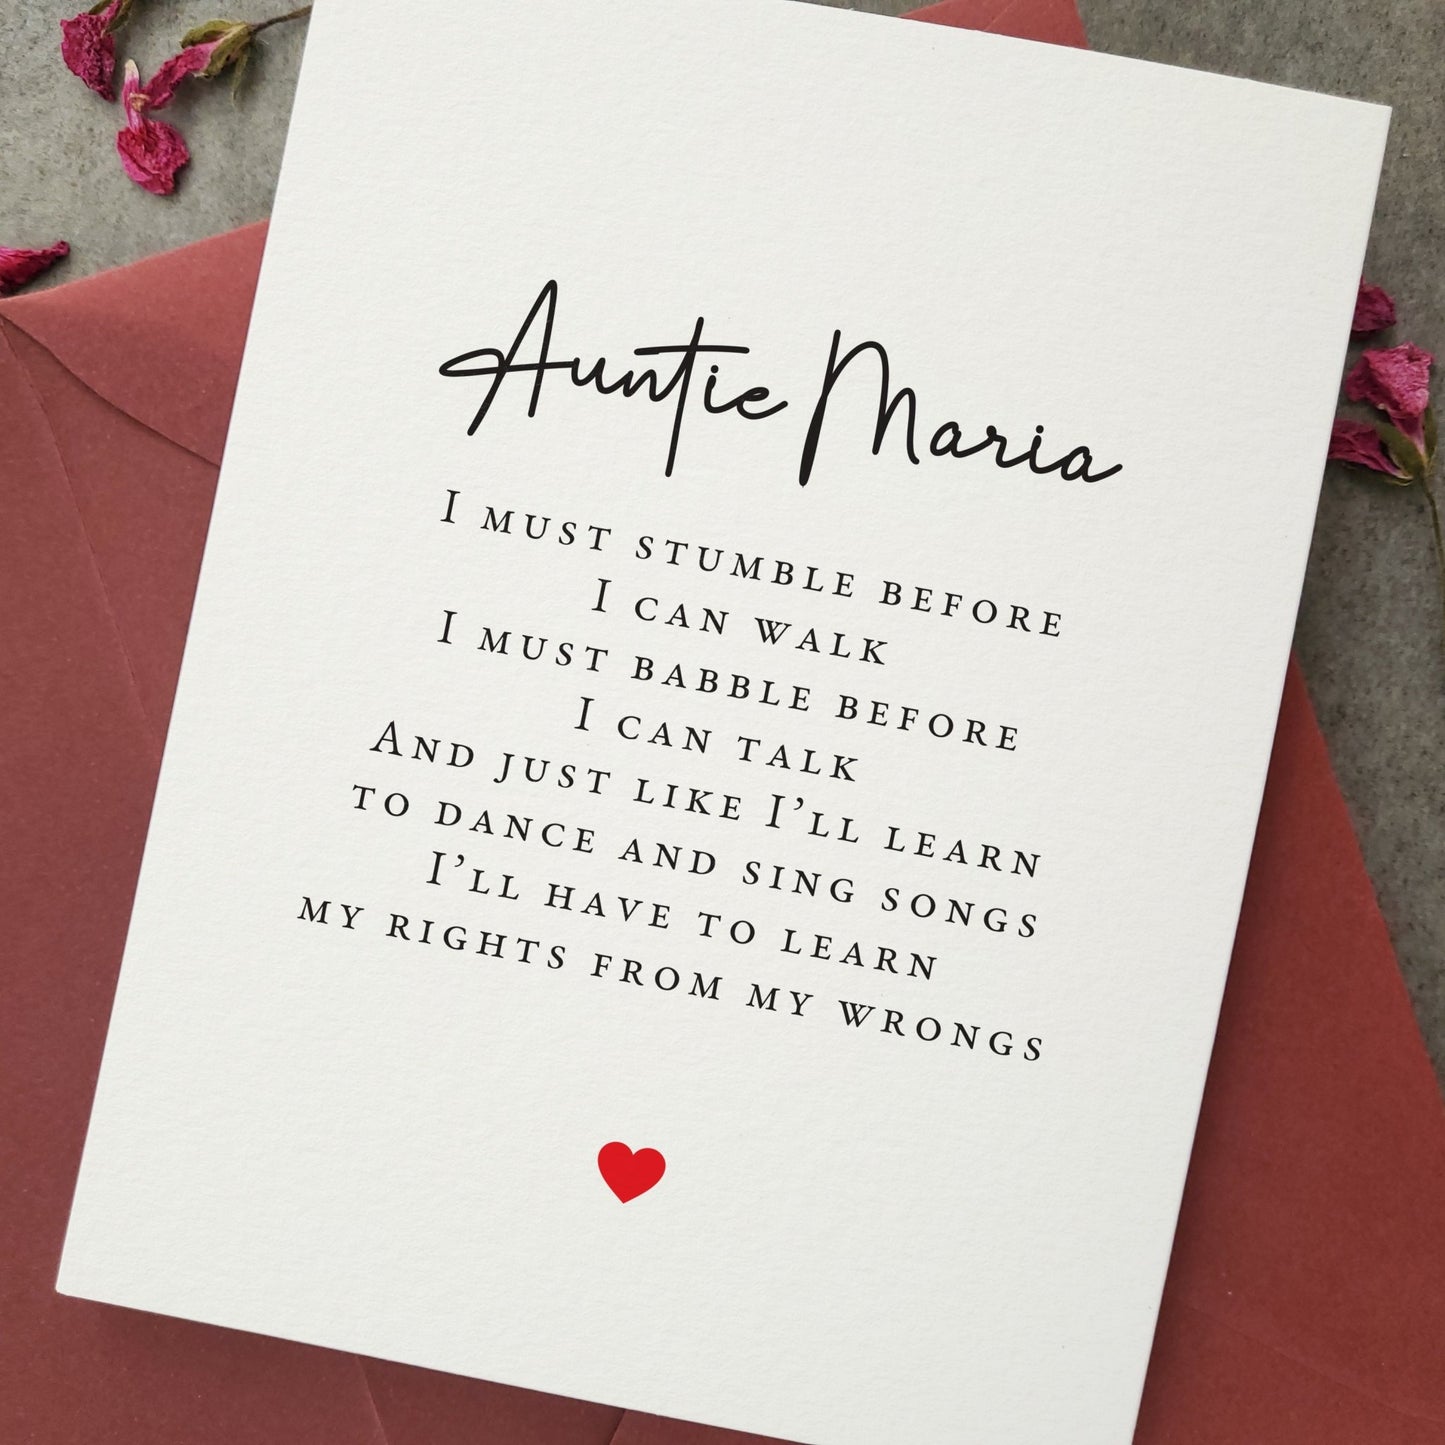 Auntie Maria
I must stumble before
I can walk
I must babble before
I can talk
And just like I'll learn
to dance and sing songs
I'll have to learn
my rights from my wrongs